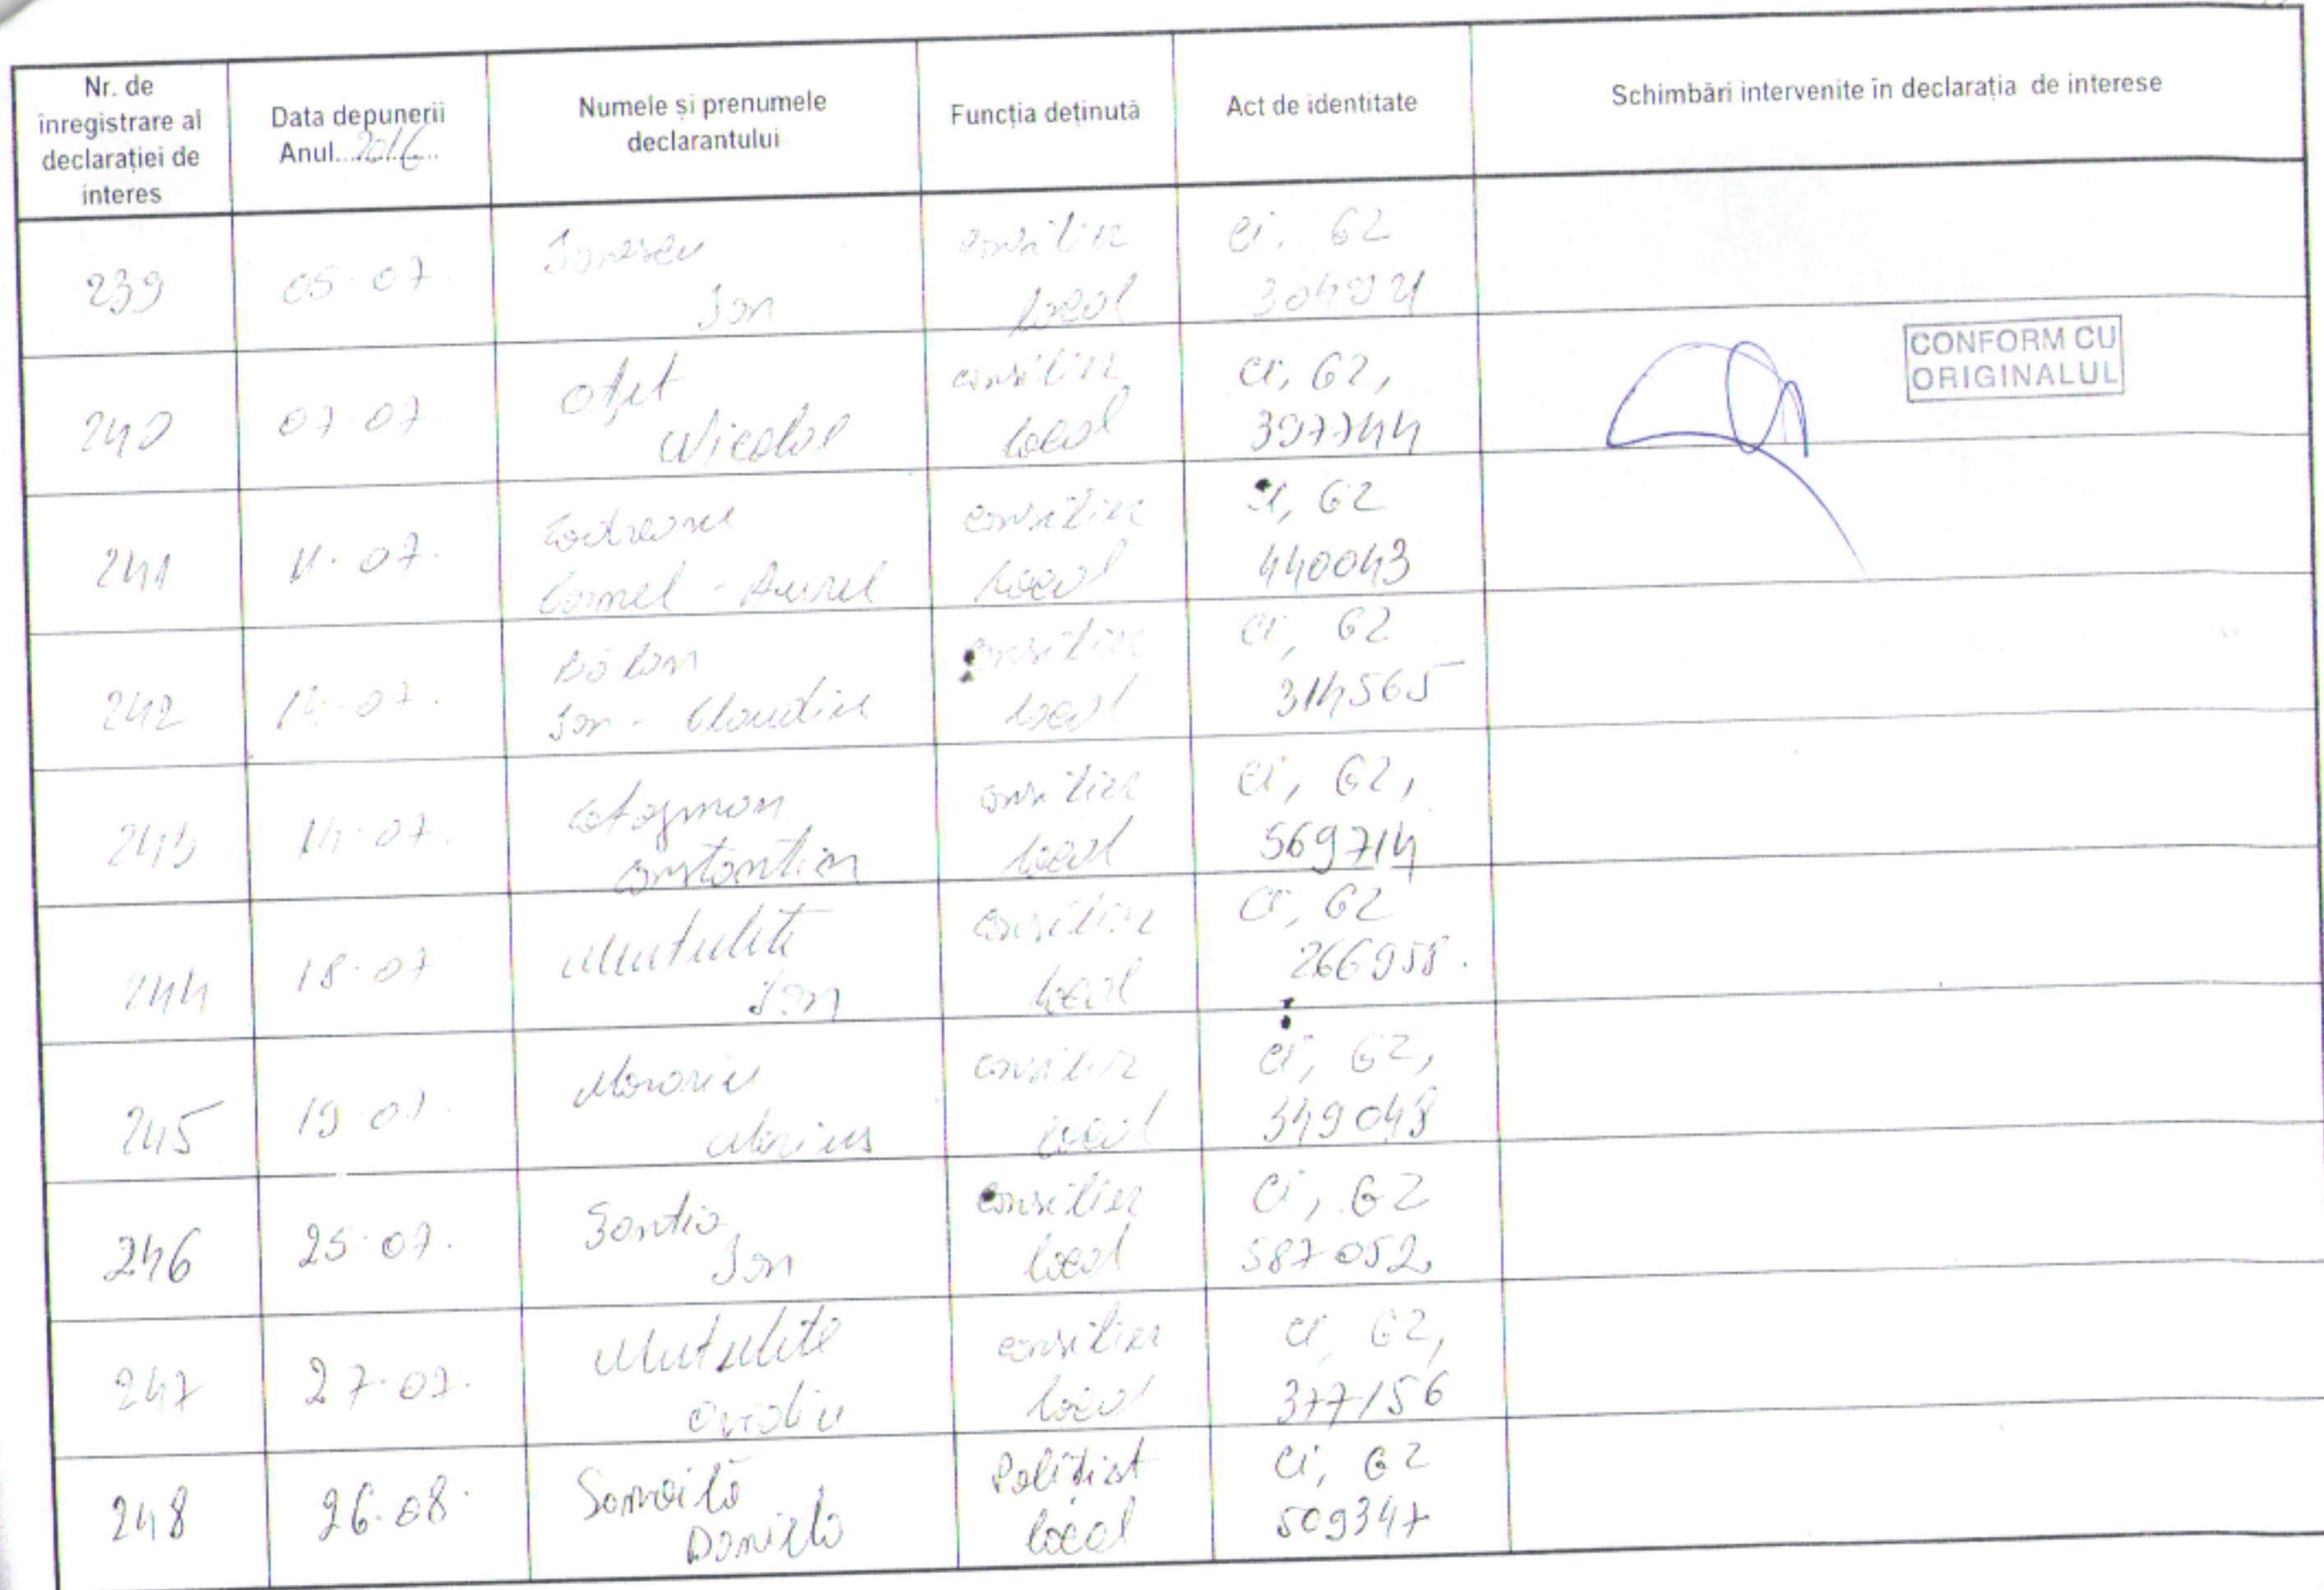 Nr. de
înregistrare al
declarației de
interes
Data depunerii
Anul...2016...
Numele și prenumele
declarantului
Funcția deținută
Act de identitate
Schimbări intervenite în declarația de interese
239
05.07.
Ionescu
Ion
consilier
local
ci, GZ
240
07.07
Oțet
Nicolae
consilier
local
ci, GZ,
397744
CONFORM CU
ORIGINALUL
241
11.07.
Codreanu
Cornel - Aurel
consilier
local
ci, GZ
440043
242
14.07.
Ion - Claudiu
consilier
local
ci, GZ
314565
243
14.07.
Constantin
consilier
local
ci, GZ,
569714
244
18.07
Mutulete
Ion
consilier
local
ci, GZ
266958.
245
19.07.
Morariu
Marius
consilier
local
ci, GZ,
349048
246
25.07.
Ion
consilier
local
ci, GZ
587052,
247
27.07.
Mutulete
Ovidiu
consilier
local
ci, GZ,
377156
248
26.08.
Samoilă
Daniela
Polițist
local
ci, GZ
509347